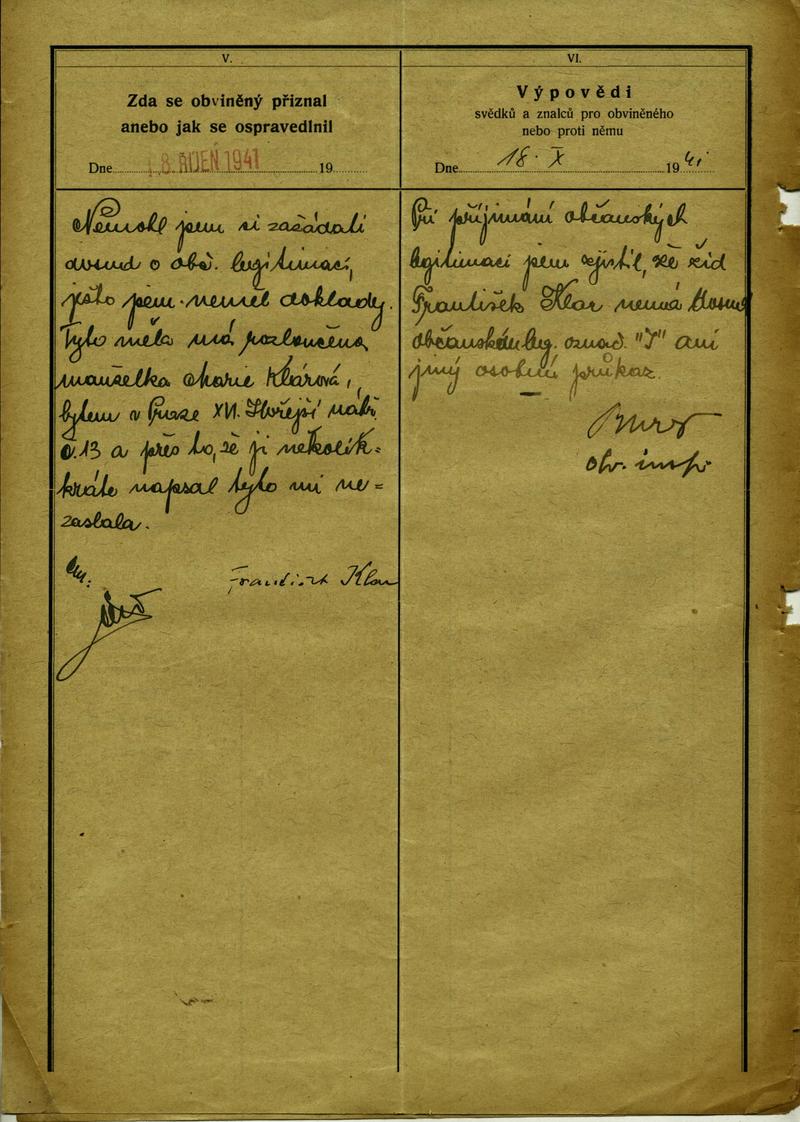 V.
Zda se obviněný přiznal
anebo jak se ospravedlnil
Dne 18. ŘÍJEN 1941 19
Nemohl jsem si zažádati
dosud o obč. legitimaci,
ješto jsem neměl doklady.
Tyto měla má rozloučená
manželka Marie Klárová,
bytem v Praze XVI. Hořejší nábř.
č. 13 a přes to, že ji několik-
kráte napsal tyto mi ne=
zaslala.
František Klar
VI.
Výpovědi
svědků a znalců pro obviněného
nebo proti němu
Dne 18. X 1941
Při přijímání občanských
legitimací jsem zjistil, že žid
František Klar nemá dosud
občanskou leg. označ. "J" ani
jiný osobní průkaz.
obv. insp.